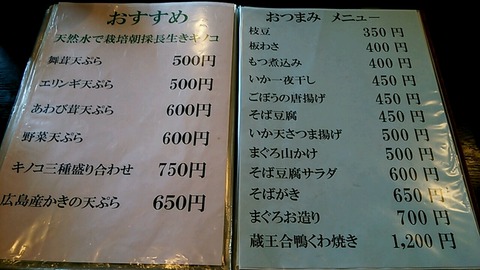 おすすめ
天然水で栽培朝採長生きキノコ
舞茸天ぷら 500円
エリンギ天ぷら 500円
あわび茸天ぷら 600円
野菜天ぷら 600円
キノコ三種盛り合わせ 750円
広島産かきの天ぷら 650円
おつまみ メニュー
枝豆 350円
板わさ 400円
もつ煮込み 400円
いか一夜干し 450円
ごぼうの唐揚げ 450円
そば豆腐 450円
いか天さつま揚げ 500円
まぐろ山かけ 500円
そば豆腐サラダ 600円
そばがき 650円
まぐろお造り 700円
蔵王合鴨くわ焼き 1,200円